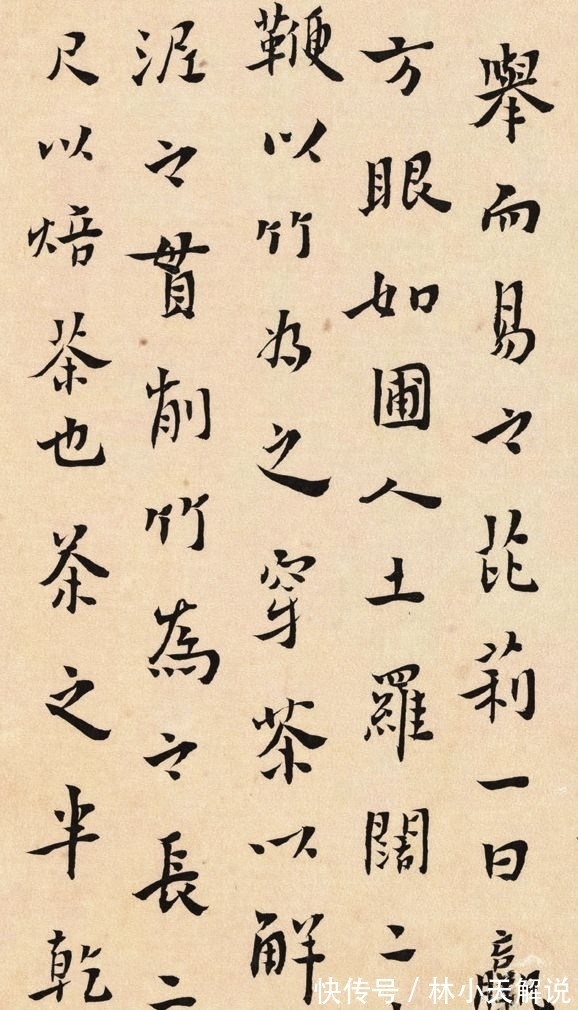 舉而易之芘莉一曰羸
方眼如圃人土羅闊二
鞭以竹為之穿茶以解
泥之貫削竹為之長二
尺以焙茶也茶之半乾
快传号/林小天解说